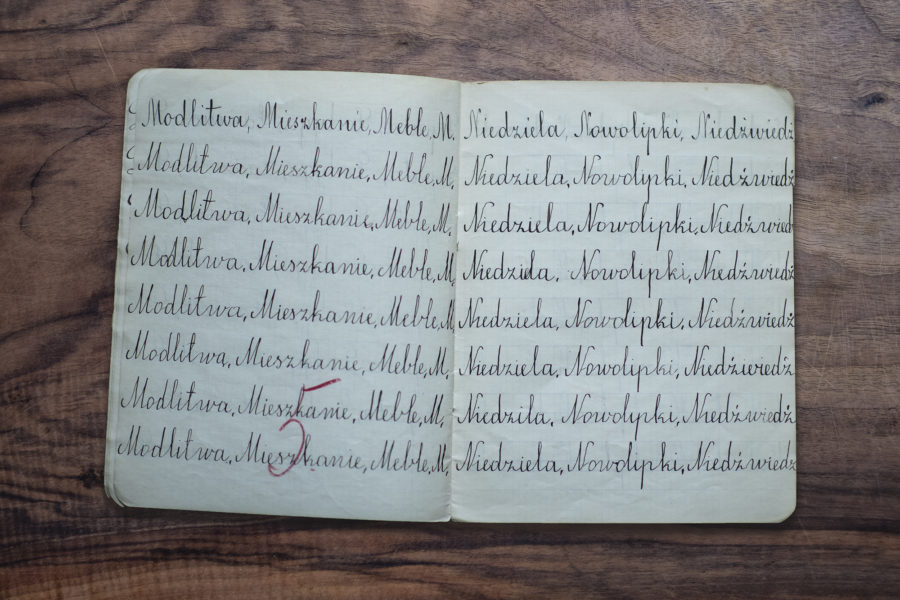 Modlitwa, Mieszkanie, Meble, M.
Modlitwa, Mieszkanie, Meble, M,
Modlitwa, Mieszkanie, Meble, M,
Modlitwa, Mieszkanie, Meble, M,
Modlitwa, Mieszkanie, Meble, M
Modlitwa, Mieszkanie, Meble, M.
Modlitwa, Mieszkanie, Meble, M,
Modlitwa, Mieszkanie, Meble, M,
5
Niedziela, Nowolipki, Niedźwiedź
Niedziela, Nowolipki, Niedźwiedź
Niedziela, Nowolipki, Niedźwied
Niedziela, Nowolipki, Niedźwiedź
Niedziela, Nowolipki, Niedźwiedź
Niedziela, Nowolipki, Niedźwiedź
Niedzila, Nowolipki, Niedźwiedź
Niedziela, Nowolipki, Niedźwiedź